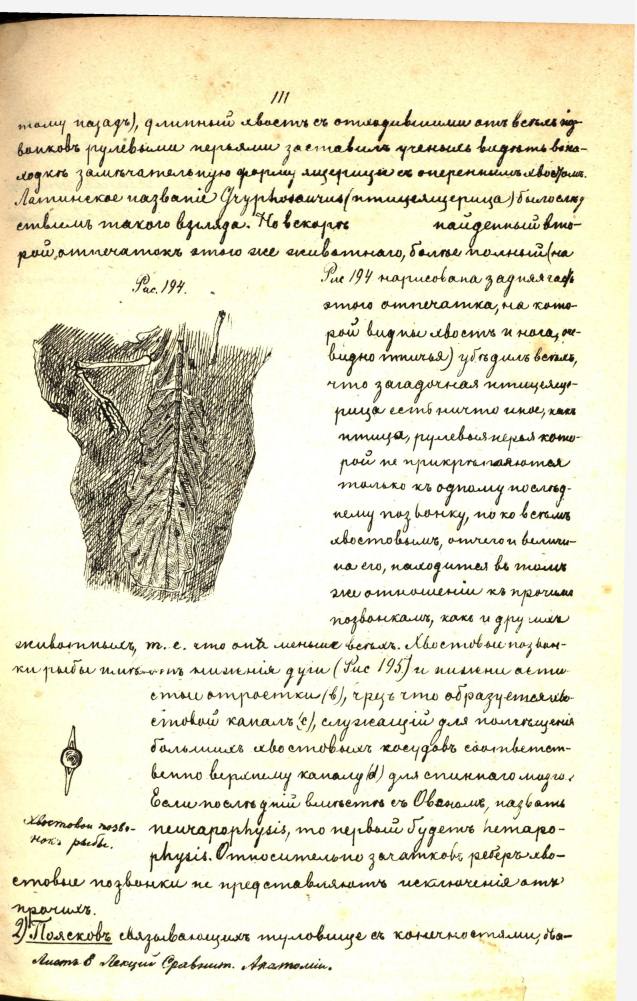 111
тому назадъ), длинный хвостъ съ отходившими отъ всѣхъ поз-
вонковъ рулевыми перьями заставилъ ученыхъ видѣть въ на-
ходкѣ замѣчательную форму ящерицы съ опереннымъ хвостомъ.
Латинское названіе Gryphosaurus (птицеящерица) было слѣд
ствіемъ такого взгляда. Но вскорѣ найденный вто-
рой, отпечатокъ этого же животнаго, болѣе полный (на
Рис. 194.
Рис 194 нарисована задняя часть
этого отпечатка, на кото-
рой видны хвостъ и нога, оче-
видно птичья) убѣдилъ всѣхъ,
что загадочная птицеяще-
рица есть ничто иное, какъ
птица, рулевыя перья кото-
рой не прикрѣпляются
только къ одному послѣд-
нему позвонку, но ко всѣмъ
хвостовымъ, отчего и величи-
на его, находится въ томъ
же отношеніи къ прочимъ
позвонкамъ, какъ и другихъ
животныхъ, т. е. что онъ меньше всѣхъ. Хвостовые позвон-
ки рыбы имѣютъ нижнія дуги (Рис 195) и нижніе ости
стые отростки (в), чрезъ что образуется хво-
стовой каналъ (с), служащій для помѣщенія
большихъ хвостовыхъ сосудовъ соотвѣтст-
венно верхнему каналу (d) для спиннаго мозга.
Если послѣдній вмѣстѣ съ Ованомъ, назвать
neurapophysis, то первый будетъ hemapo-
physis. Относительно зачатковъ реберъ хво-
Хвостовой позво-
нокъ рыбы.
стовые позвонки не представляютъ исключенія отъ
прочихъ.
2) Поясковъ связывающихъ туловище съ конечностями, два-
Листъ 8 Лекцій Сравнит. Анатоміи.